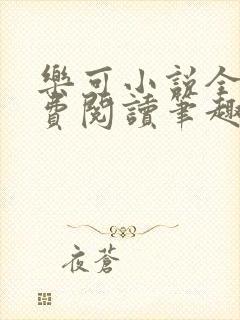 樂可小說全
費閱讀筆趣
夜蒼